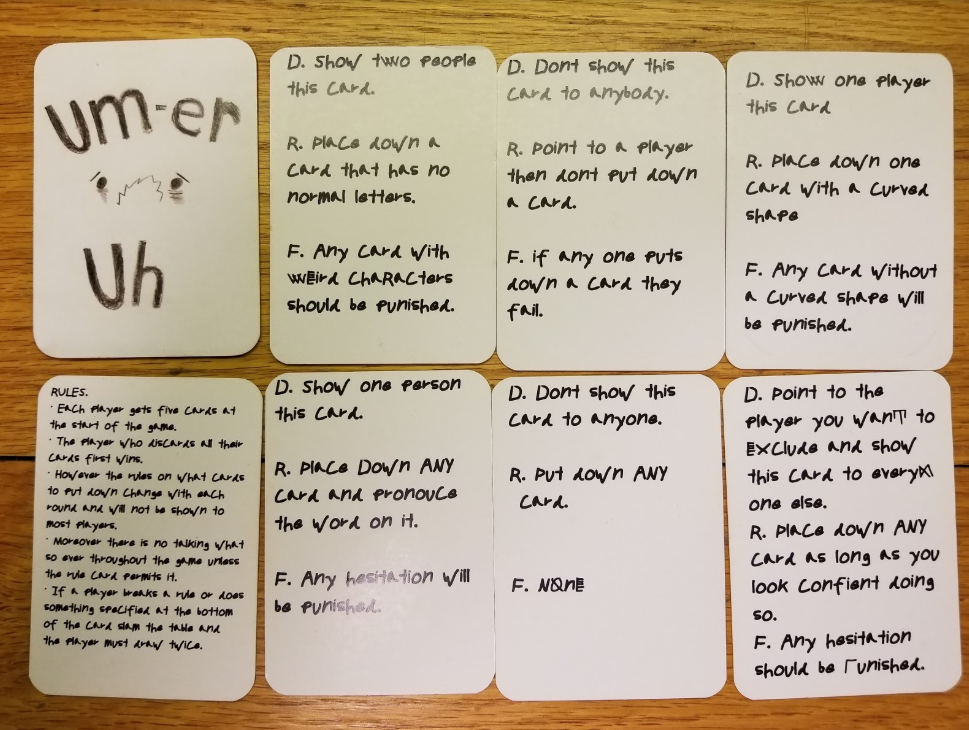 um-er
Uh
D. Show two people
this card.
R. Place down a
card that has no
normal letters.
F. Any card with
wEird ChaRaCters
should be punished.
D. Dont show this
card to anybody.
R. Point to a player
then dont put down
a card.
F. if any one puts
down a card they
fail.
D. Show one player
this card
R. Place down one
card with a curved
shape
F. Any card without
a curved shape will
be punished.
RULES.
· Each player gets five cards at
the start of the game.
· The player who discards all their
cards first wins.
· However the rules on what cards
to put down change with each
round and will not be shown to
most players.
· Moreover there is no talking what
so ever throughout the game unless
the rule card permits it.
· If a player breaks a rule or does
something specified at the bottom
of the card slam the table and
the player must draw twice.
D. Show one person
this card.
R. Place Down ANY
card and pronouce
the word on it.
F. Any hesitation will
be punished.
D. Dont show this
card to anyone.
R. Put down ANY
card.
F. NonE
D. Point to the
player you wanT to
Exclude and show
this card to every
one else.
R. Place down ANY
card as long as you
look confient doing
so.
F. Any hesitation
should be Punished.